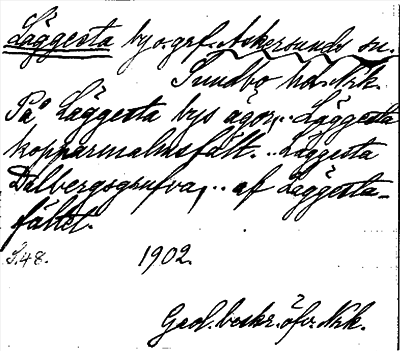 Läggesta by o. grf. Askersunds sn.
Sundbo hd. Nrk.
På Läggesta bys ägor, .. Läggesta
kopparmalmsfält. .. Läggesta
Dalbergsgrufva, .. af Läggesta-
fältet.
S. 48. 1902.
Geol. beskr. öfv. Nrk.